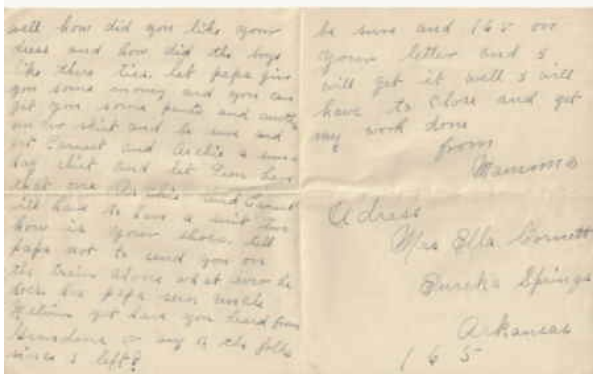 well how did you like your
dress and how did the boys
like there ties. let papa give
you some money and you can
get you some pants and
shirt and be sure and
get Earnest and Archie a
day shirt and let have
that one Archie and Earnest
will have to have a suit
how is your shoes. tell
papa not to send you on
the train alone what ever he
does has papa seen uncle
yet have you heard from
Grandma or any of the folks
since I left?
be sure and 165 on
your letter and I
will get it well I will
have to close and get
my work done
from
Mamma
Adress
Mrs Ella Cornett
Eureka Springs
Arkansas
165